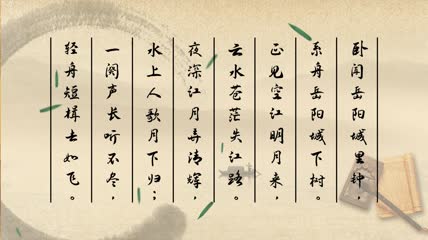 卧闻岳阳城里钟，
系舟岳阳城下树。
正见空江明月来，
云水苍茫失江路。
夜深江月弄清辉，
水上人歌月下归；
一阕声长听不尽，
轻舟短楫去如飞。